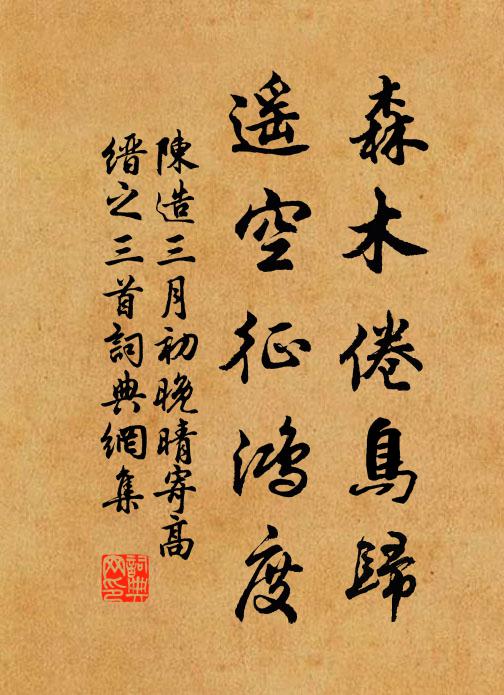 森木倦鳥歸
遥空征鴻度
陳造三月初晚晴寄高
縉之三首詞典網集
詞典网印